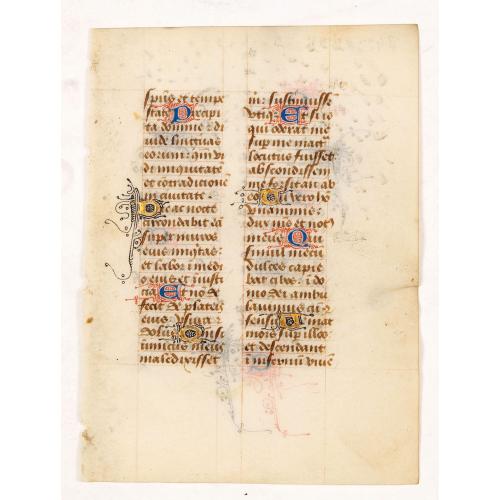 spūs et tempe
state. Precipi
ta domine: di
uide linguas
eorum: qm vi
di iniquitatē
et cōtradictionē
in ciuitate.
Die ac nocte
circūdabit eā
super muros
eius iniqtas:
et labor ī medi
o eius et iniusti
cia. Et nō de
fecit de plateis
eius: vsura et
dolus. Qm si
inimicus meus
maledixisset
m: sustinuisse
vtiqȝ. Et si is
qui oderat me
sup me mag
locutus fuisset:
abscondissem
me forsitan ab
eo. Tu vero ho
vnanimis:
dux meus et not
meus. Qui
simul mecū
dulces capie
bat cibos: ī do
mo dei ambu
lauimus cū cō
sensu. Veniat
mors sup illos:
et descendant
ī infernū viuē